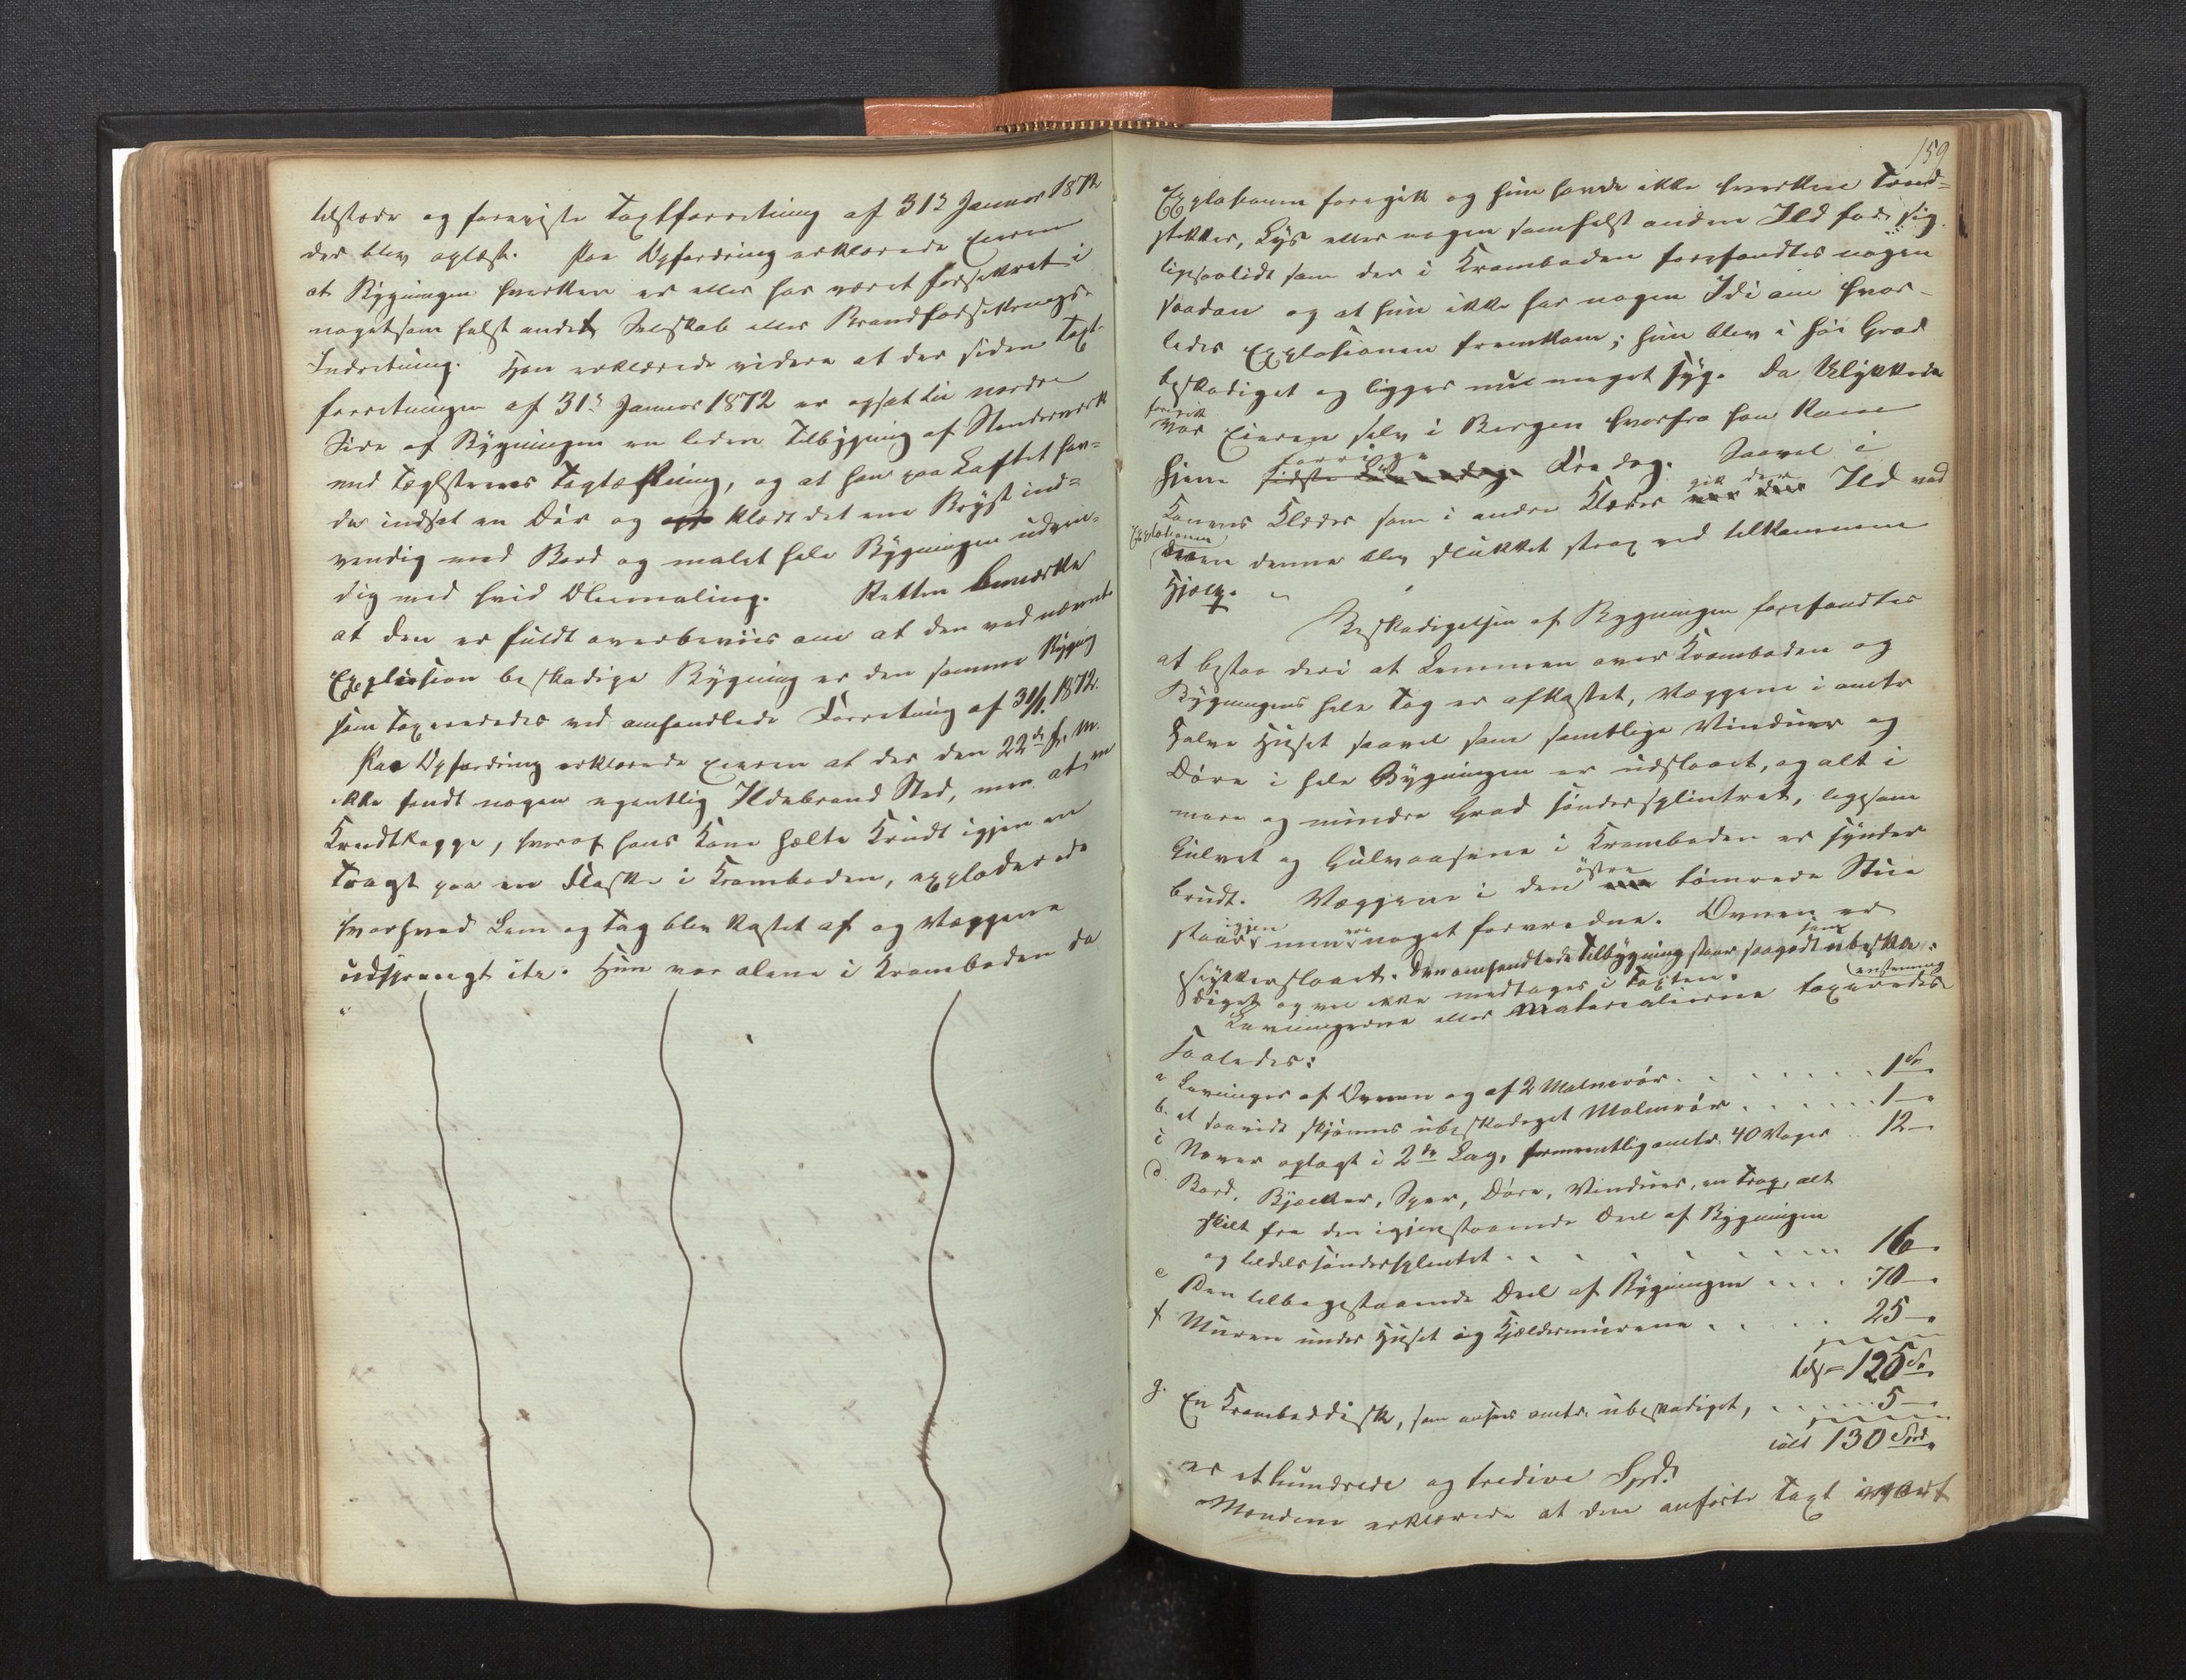 tilstede og foreviste Taxtforretning af 31te Januar 1872
der blev oplæst. Paa Opfordring erklærede Eieren
at Bygningen hverken er eller har været forsikret i
nogetsom helst andet Selskab eller Brandforsikrings-
Indretning. Han erklærede videre at der siden Taxt-
forretningen af 31te Januar 1872 er opsat til nordre
Side af Bygningen en liden Tilbygning af Stenderværk
med Taglstenes Tagtækning, og at han paa Loftet hav-
de indsat en Dør og klædt det ene Bryst ind-
vendig med Bord og malet hele Bygningen udven-
dig med hvid Oliemaling. Retten bemærker
at den er fuldt overbeviis om at den ved nævnte
Explosion beskadige Bygning er den samme Bygning
som taxeredes ved omhandlede Forretning af 31/1 1872.
Paa Opfordring erklærede Eieren at der den 22de f. M.
ikke fandt nogen egentlig Ildebrand Sted, men at en
Krudtkagge, hvoraf hans Kone hælte Krudt igjennem
Tragt paa en Flaske i Kramboden, exploderede
hvorhved Lem og Tag blev kastet af og Væggene
udsprængt etc. Hun var alene i Kramboden da
159
Explosionen foregik og hun havde ikke hverken Tænd-
stikker, Lys eller nogen somhelst anden Ild for sig
ligesaalidt som der i Kramboden forefandtes nogen
saadan og at hun ikke har nogen Idé om hvor-
ledes Explosionen fremkom; hun blev i høi Grad
beskadiget og ligger nu meget syg. Da Ulykken
foregik
var Eieren selv i Bergen hvorfra han kom
forrige
hjem sidste Fredag. Saavel i
gik der
Konens Klæder som i andre Klæder var der Ild ved
Explosionen
men denne blev slukket strax ved tilkommen
Hjælp.
Beskadigelsen af Bygningen forefandtes
at bestaa deri at Lemmen over Kramboden og
Bygningens hele Tag er afkastet, Væggene i omtr
halve Huset saavel som samtlige Vinduer og
Døre i hele Bygningen er udslaaet, og alt i
mere og mindre Grad søndersplintret, ligesom
Gulvet og Gulvaasene i Kramboden er sønder
østre
brudt. Væggene i den tømrede Stue
igjen ere
staar men noget forvredne. Ovnen er
som
stykkerslaaet. Den omhandlede Tilbygning staar saagodt ubeska-
diget og vil ikke medtages i Taxten.
Levningerne eller Materialierne taxeredes
enstemmig
saaledes:
a Levninger af Ovnen og af 2 Malmrør . . . . . . . 1 Sp.
b. et saavidt skjønnes ubeskadeget Malmrør . . . . . . 1 —
c Never oplagt i 2de Lag, formentlig omtr 40 Voger . . 12 —
d. Bord, Bjælker, Sper, Døre, Vinduer, en Trap, alt
skilt fra den igjenstaaende Deel af Bygningen
og tildels søndersplintet . . . . . . . . . . 16 —
e Den tilbagestaaende Deel af Bygningen . . . . 70 —
f Muren under Huset og Kjældermurene . . . . . 25 —
tils = 125 Sp.
g. En Kramboddisk, som ansees omtr. ubeskadiget, . . . . . 5 —
ialt 130 Spd.
er et hundrede og tredive Spd.
Mændene erklærede at den anførte Taxt